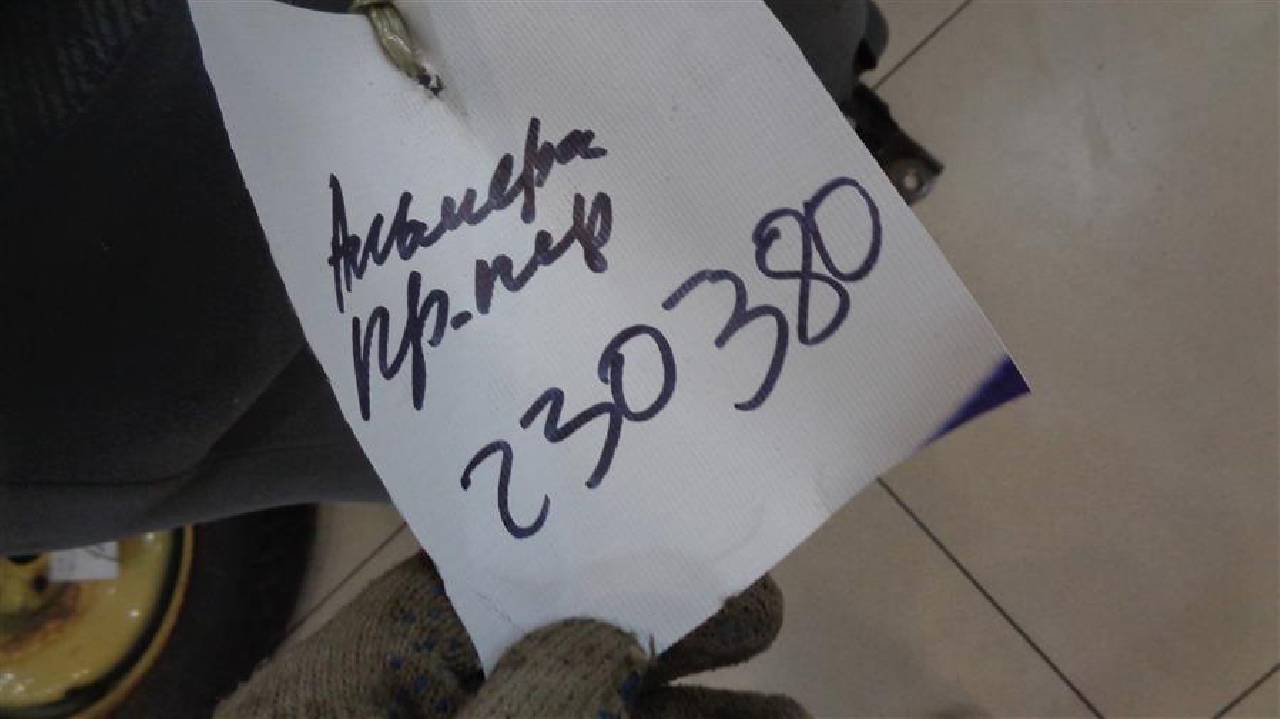 Альмера
пр-пер
230380